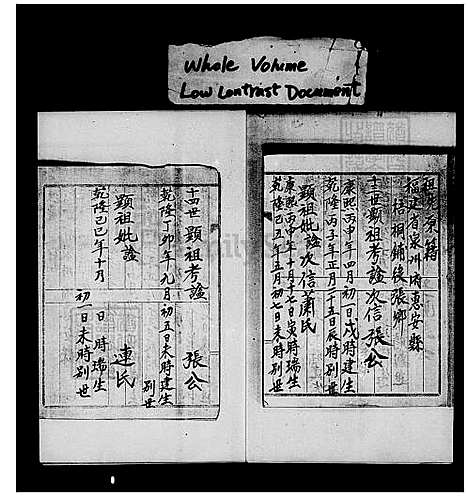 Whole Volume
Low Contrast Document
祖先原籍
福建省泉州府惠安縣
梧桐鋪後張鄉
十三世顯祖考諡次信張公
康熙丙申年四月初一日戌時建生
乾隆丙子年正月二十五日辰時別世
顯祖妣諡次信蕭氏
康熙丙申年十月十七日寅時瑞生
乾隆己丑年五月初七日未時別世
十四世顯祖考諡 張公
乾隆丁卯年九月初五日未時建生
別世
顯祖妣諡 連氏
日 時瑞生
乾隆己巳年十月初一日未時別世